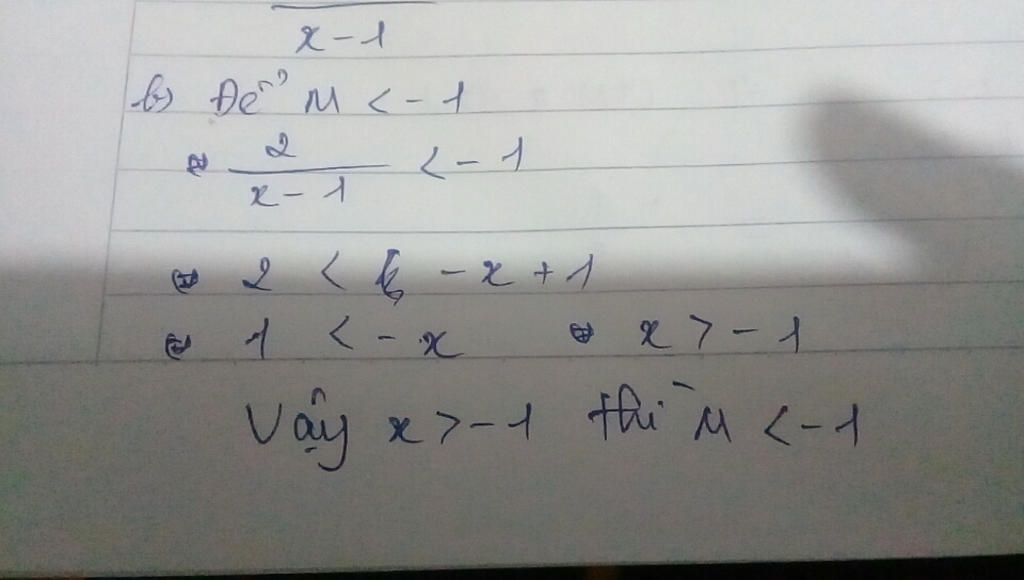 x - 1
b) Để M < -1
⇔ 2 / (x - 1) < -1
⇔ 2 < - x + 1
⇔ 1 < - x ⇔ x > - 1
Vậy x > -1 thì M < -1